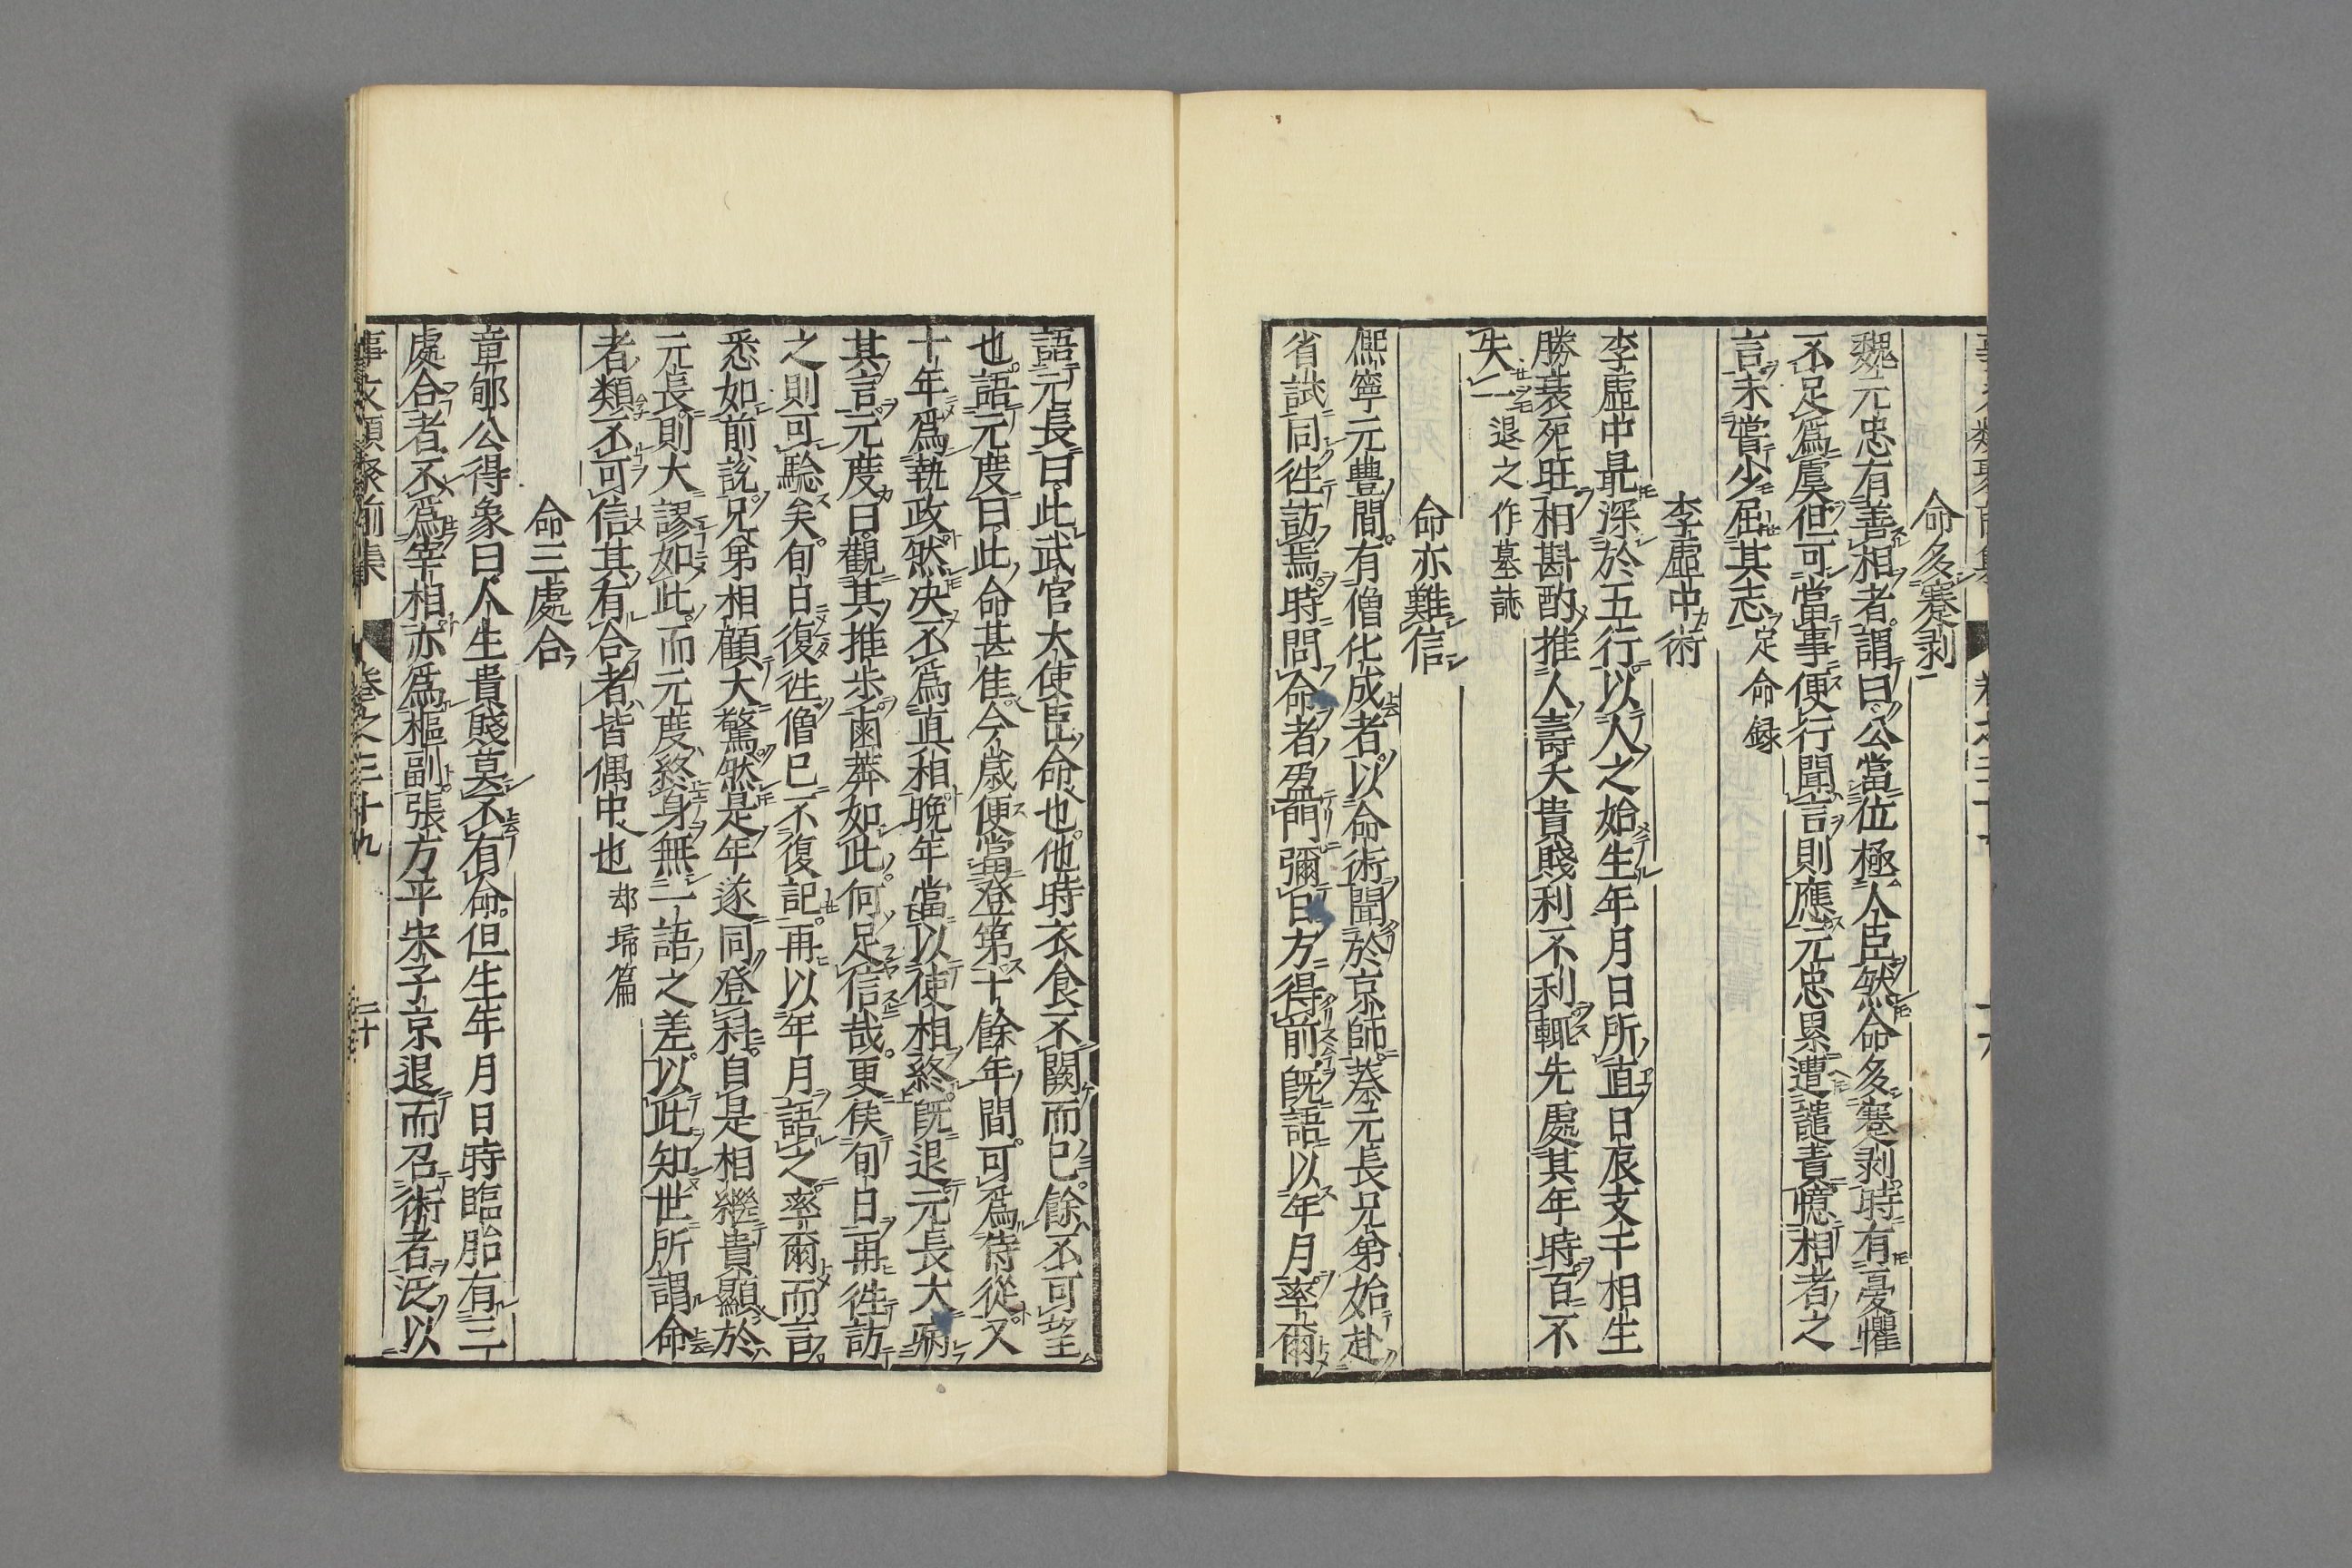 命多蹇剝
魏元忠有善相者謂曰公當位極人臣然命多蹇剝時有憂懼
不足為虞但可當事便行聞言則應元忠累遭譴責憶相者之
言未嘗少屈其志定命録
李虛中術
李虛中最深於五行以人之始生年月日所直日辰支干相生
勝衰死旺相斟酌推人壽夭貴賤利不利輒先處其年時百不
失一退之作墓誌
命亦難信
熙寧元豐間有僧化成者以命術聞於京師蔡元長兄弟始赴
省試同徃訪焉時問命者盈門彌日方得前既語以年月率爾
語元長曰此武官大使臣命也他時衣食不闕而已餘不可望
也語元度曰此命甚佳今歳便當登第十餘年間可為侍從又
十年為執政然决不為真相晩年當以使相終既退元長大病
其言元度曰觀其推歩鹵莽如此何足信哉更俟旬日再徃訪
之則可驗矣旬日復徃僧已不復記再以年月語之率爾而言
悉如前說兄弟相顧大驚然是年遂同登科自是相繼貴顯於
元長則大謬如此而元度終身無一語之差以此知世所謂命
者類不可信其有合者皆偶中也却掃篇
命三處合
章郇公得象曰人生貴賤莫不有命但生年月日時臨胎有三
處合者不為宰相亦為樞副張方平宋子京退而召術者泛以
事文類聚前集 卷之三十九 二十